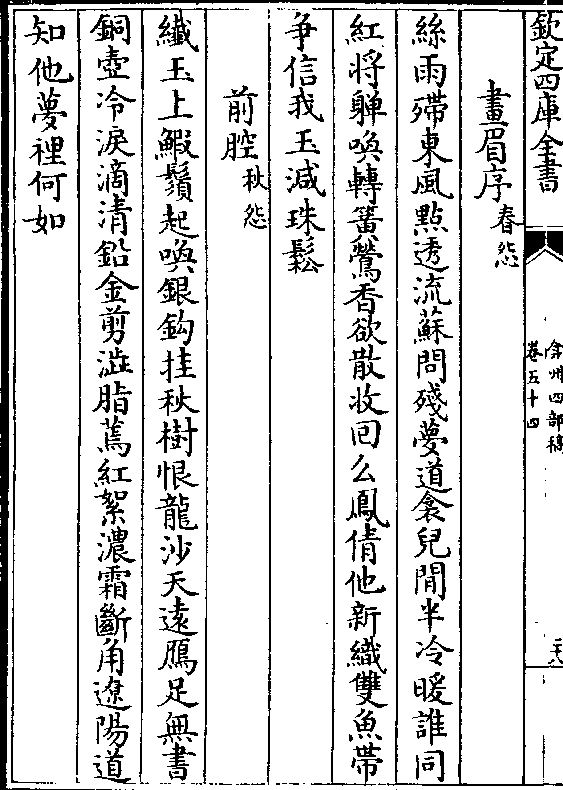 欽定四庫全書
弇州四部稿
卷五十四
二十八
畫眉序春怨
絲雨殢東風點透流蘇問殘夢道衾兒閒半冷暖誰同
紅將軃喚轉簧鶯香欲散收回么鳳倩他新織雙魚帶
争信我玉減珠鬆
前腔秋怨
纖玉上鰕鬚起喚銀鈎挂秋樹恨龍沙天逺鴈足無書
銅壺冷淚滴清鉛金剪澁脂蔫紅絮濃霜斷角遼陽道
知他夢裡何如